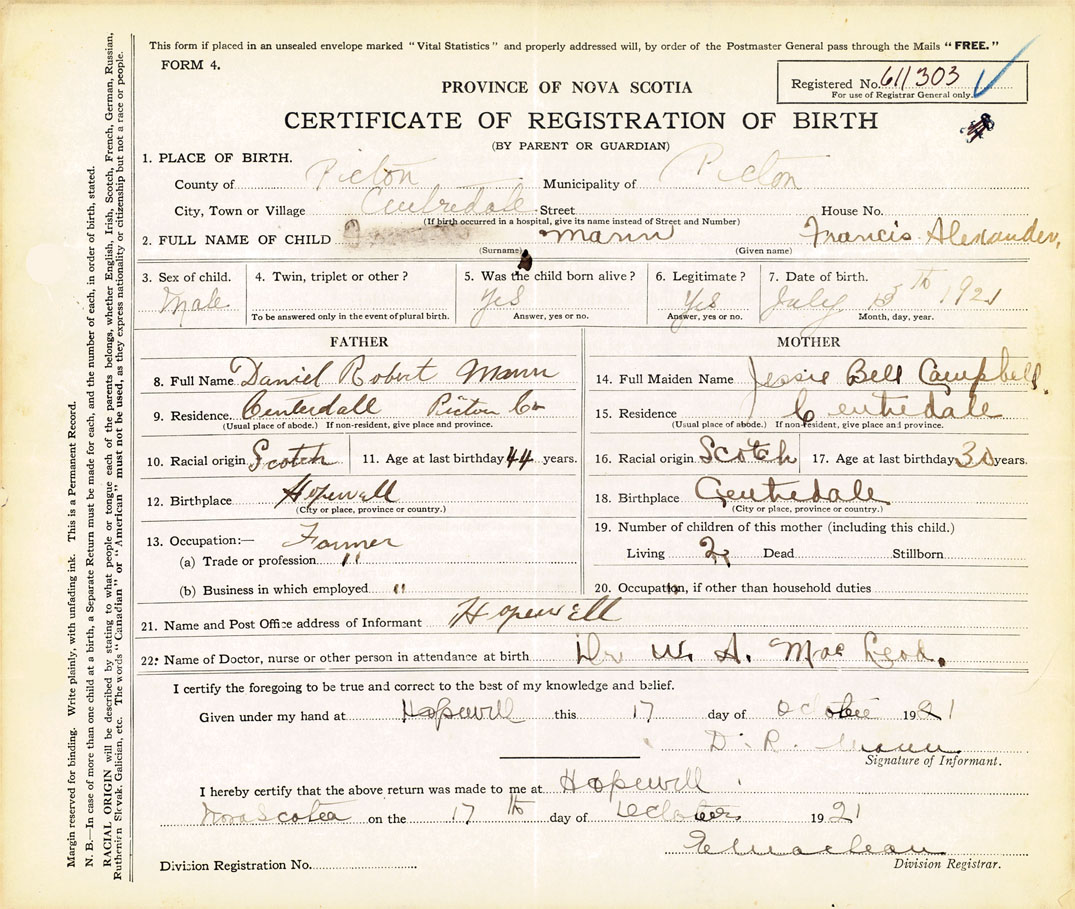 This form if placed in an unsealed envelope marked "Vital Statistics" and properly addressed will, by order of the Postmaster General pass through the Mails "FREE."
FORM 4.
Registered No. 611303
For use of Registrar General only.
PROVINCE OF NOVA SCOTIA
CERTIFICATE OF REGISTRATION OF BIRTH
(BY PARENT OR GUARDIAN)
1. PLACE OF BIRTH.
County of Picton Municipality of Picton
City, Town or Village Centredale Street House No.
(If birth occurred in a hospital, give its name instead of Street and Number)
2. FULL NAME OF CHILD Mann Francis Alexander,
(Surname) (Given name)
3. Sex of child. 4. Twin, triplet or other? 5. Was the child born alive? 6. Legitimate? 7. Date of birth.
Male Yes Yes July th 1921
To be answered only in the event of plural birth. Answer, yes or no. Answer, yes or no. Month, day, year.
FATHER
8. Full Name Daniel Robert Mann
9. Residence Centerdall Picton Co
(Usual place of abode.) If non-resident, give place and province.
10. Racial origin Scotch 11. Age at last birthday 44 years.
12. Birthplace Hopewell
(City or place, province or country.)
13. Occupation:— Farmer
(a) Trade or profession "
(b) Business in which employed "
MOTHER
14. Full Maiden Name Jessie Bell Campbell.
15. Residence Centredale
(Usual place of abode.) If non-resident, give place and province.
16. Racial origin Scotch 17. Age at last birthday 30 years.
18. Birthplace Centredale
(City or place, province or country.)
19. Number of children of this mother (including this child.)
Living 2 Dead Stillborn
20. Occupation, if other than household duties
21. Name and Post Office address of Informant Hopewell
22. Name of Doctor, nurse or other person in attendance at birth Dr W. A. Mac Leod.
I certify the foregoing to be true and correct to the best of my knowledge and belief.
Given under my hand at Hopewell this 17 day of October 1921
D. R. Mann
Signature of Informant.
I hereby certify that the above return was made to me at Hopewell
Nova Scotia on the 17 th day of October 1921
Maclean
Division Registration No. Division Registrar.
Margin reserved for binding. Write plainly, with unfading ink. This is a Permanent Record.
N. B.—In case of more than one child at a birth, a Separate Return must be made for each, and the number of each, in order of birth, stated.
RACIAL ORIGIN will be described by stating to what people or tongue each of the parents belongs, whether English, Irish, Scotch, French, German, Russian,
Ruthenian Slovak, Galician, etc. The words "Canadian" or "American" must not be used, as they express nationality or citizenship but not a race or people.